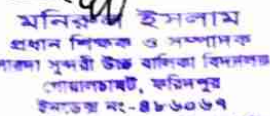 মনিরুল ইসলাম
প্রধান শিক্ষক ও সম্পাদক
সুন্দরী উচ্চ বালিকা বিদ্যালয়
গোয়ালচামট, ফরিদপুর
ইনডেক্স নং-৪৮৬০৬৭